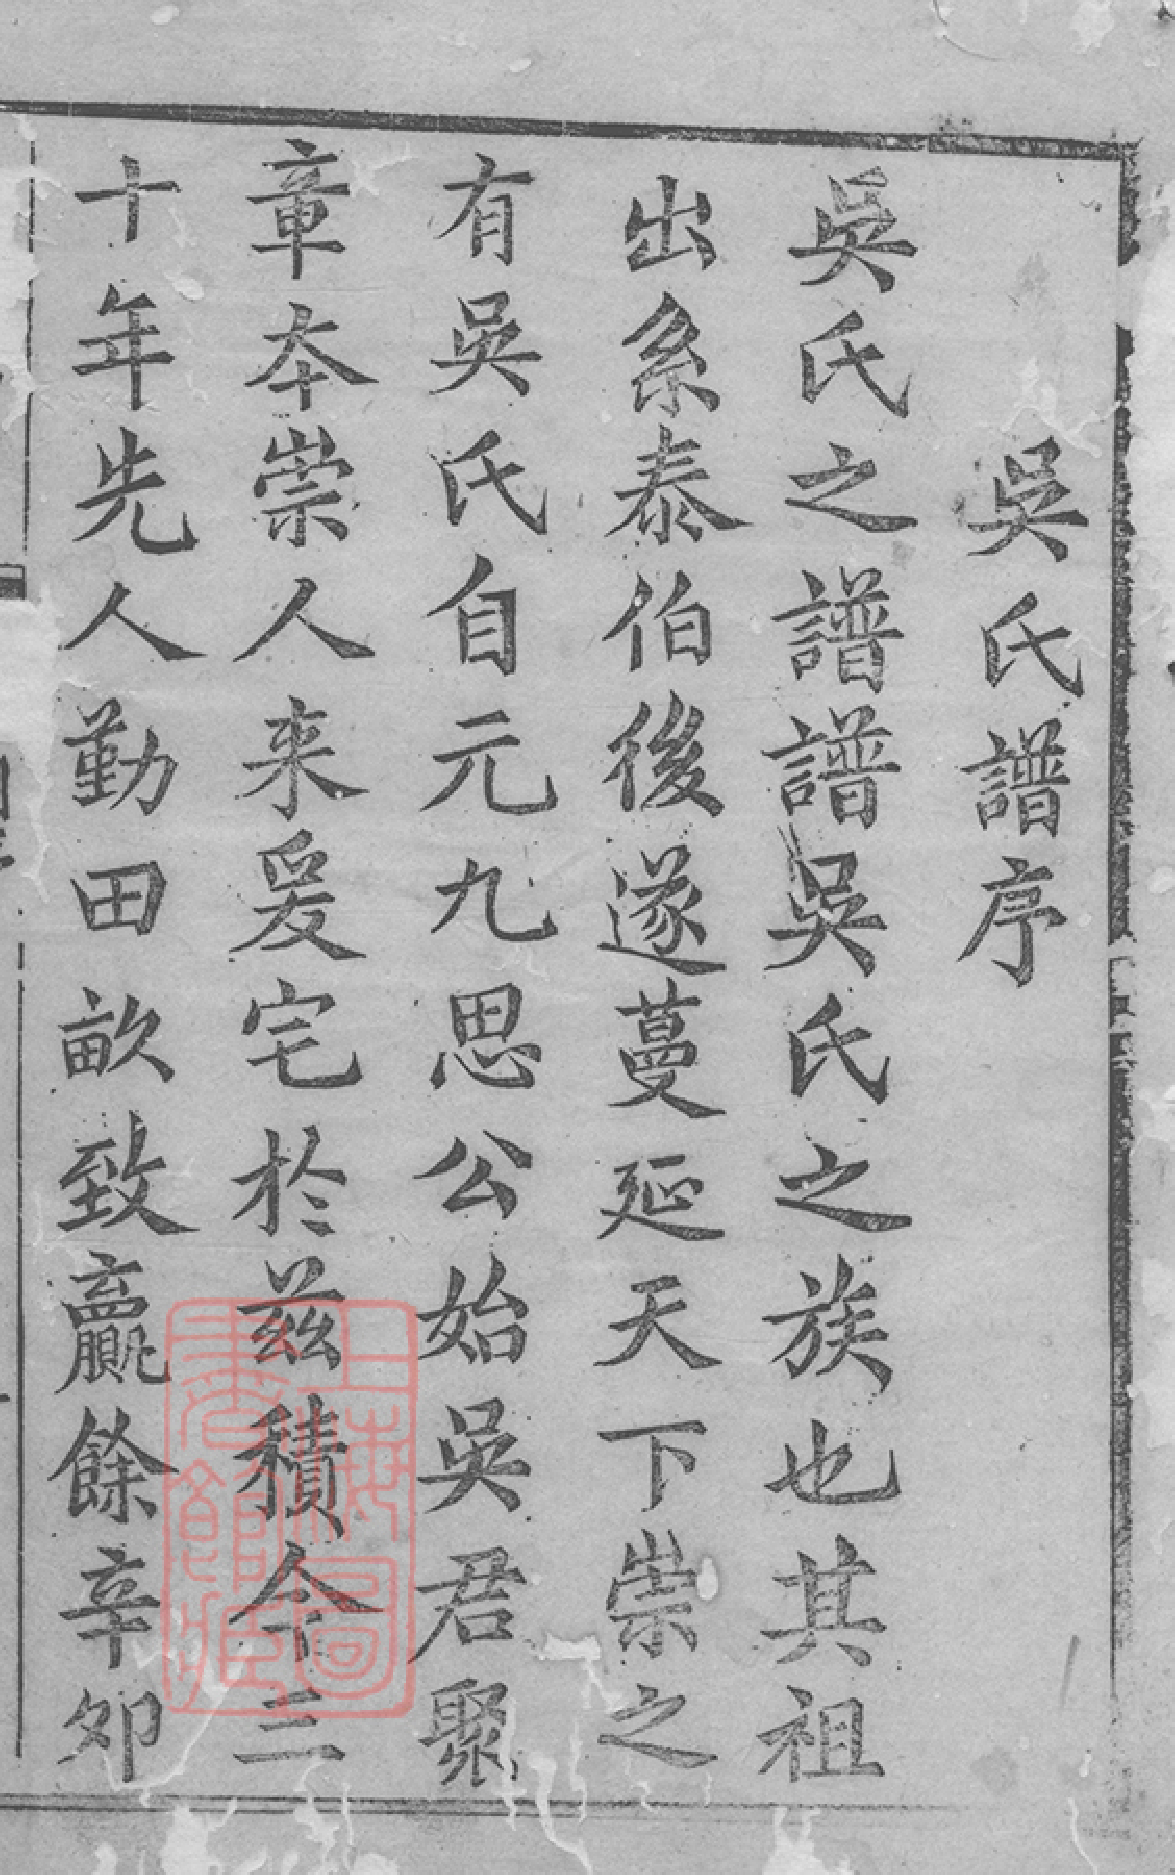 吳氏譜序
吳氏之譜譜吳氏之族也其祖
出系泰伯後遂蔓延天下崇之
有吳氏自元九思公始吳君聚
章本崇人来爰宅於茲積今三
十年先人勤田畝致贏餘辛夘
上海圖書館藏